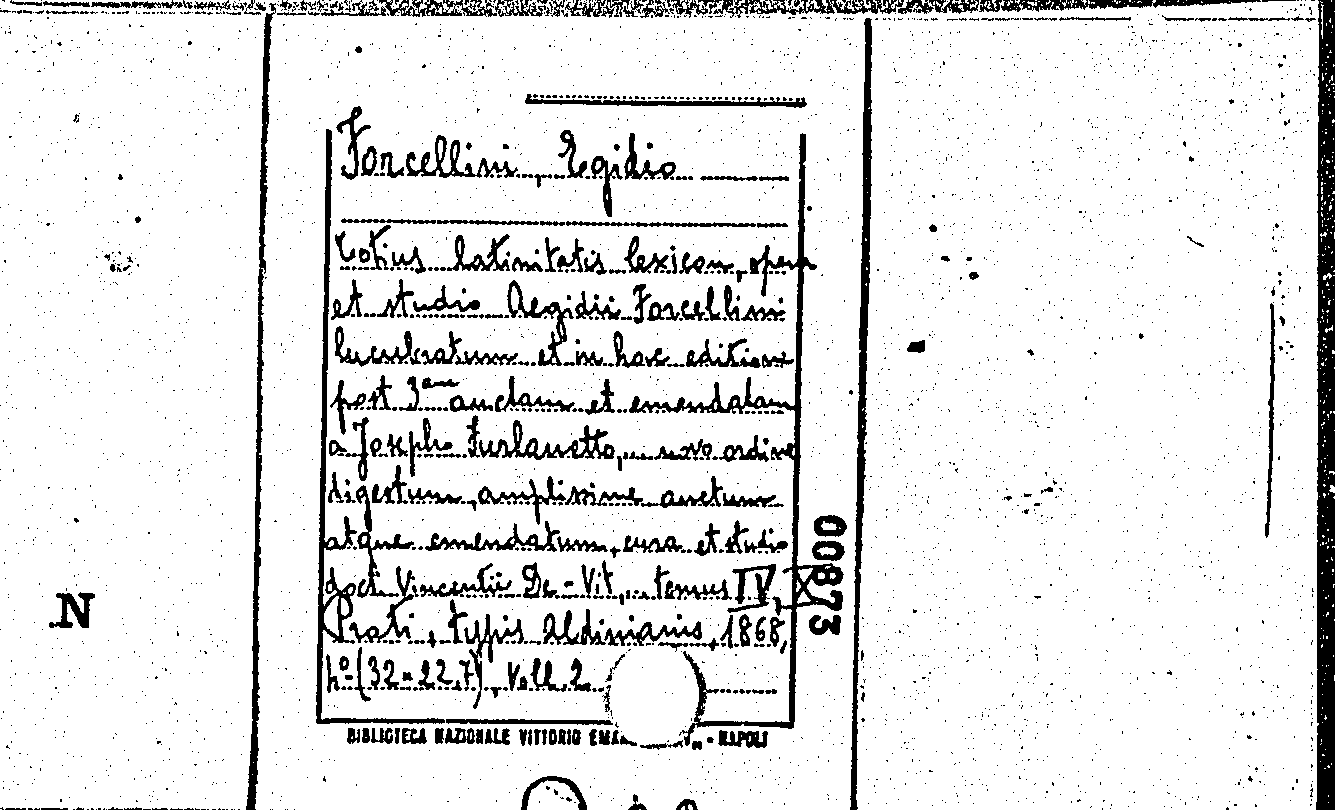 Forcellini, Egidio
Totius latinitatis lexicon, opera
et studio Aegidii Forcellini
lucubratum et in hac editione
post 3am auctam et emendatam
a Josepho Furlanetto,... novo ordine
digestum, amplissime auctum
atque emendatum, cura et studio
doct. Vincentii De-Vit,... tomus IV, X
Prati, typis Aldinianis, 1868,
4º (32×22,7), Voll. 2
BIBLIOTECA NAZIONALE VITTORIO - NAPOLI
00873
.N